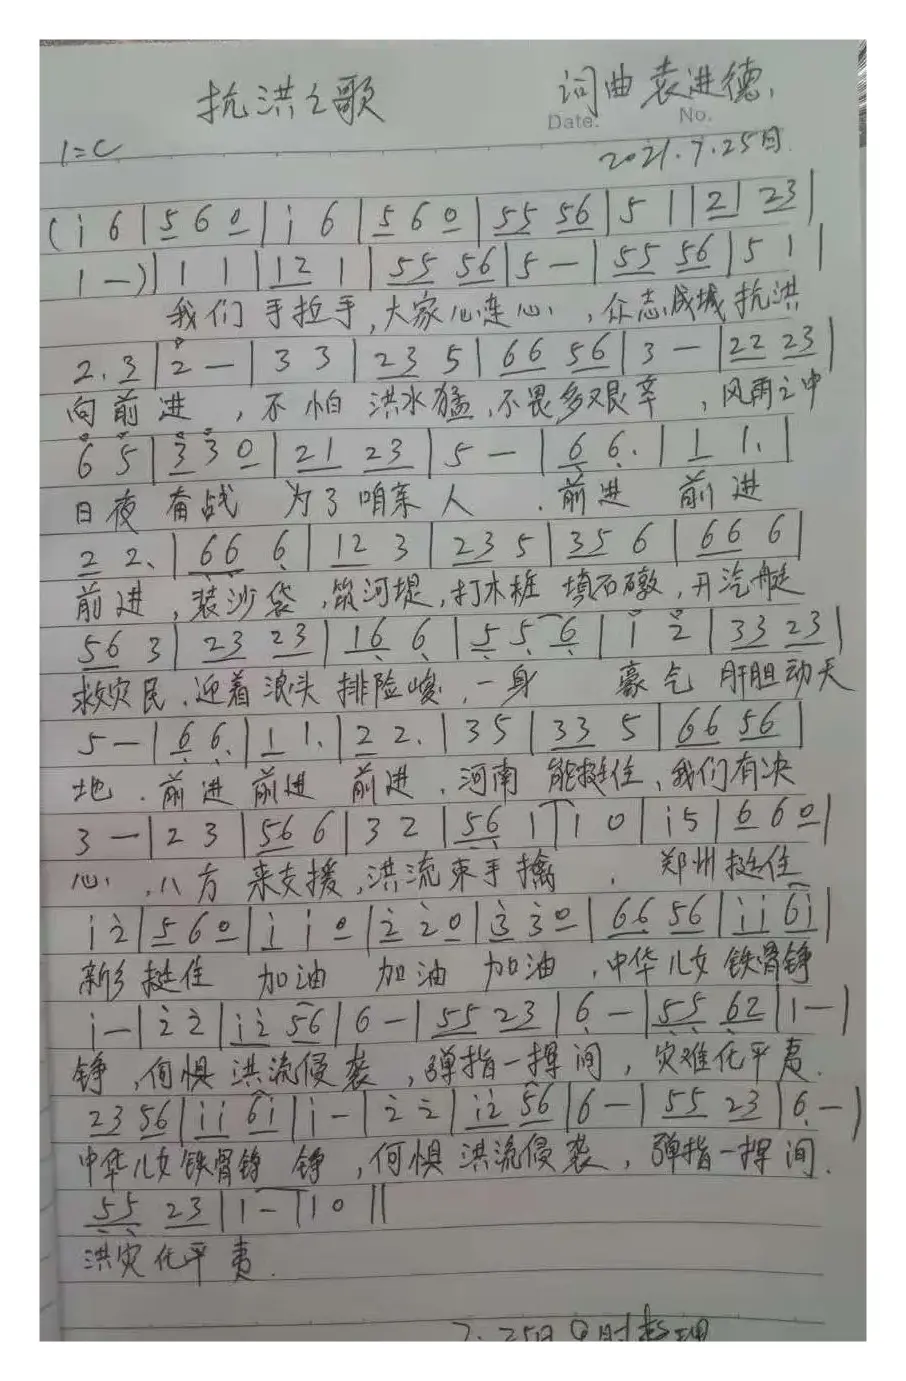 抗洪之歌 词曲袁进德
Date: No.
1=C 2021.7.25日
(i 6|5 6 0|i 6|5 6 0|55 56|5 1|2 23|
1 —)|1 1|12 1|55 56|5 —|55 56|5 1|
我们手拉手,大家心连心,众志成城抗洪
2. 3|2 —|3 3|23 5|66 56|3 —|22 23|
向前进,不怕洪水猛,不畏多艰辛,风雨之中
6 5|3 3 0|21 23|5 —|6 6.|1 1.|
日夜奋战 为了咱亲人.前进 前进
2 2.|66 6|12 3|23 5|35 6|66 6|
前进,装沙袋,筑河堤,打木桩 填石礅,开汽艇
56 3|23 23|16 6|5 5 6|i 2|33 23|
救灾民.迎着浪头排险峻.一身 豪气 肝胆动天
5 —|6 6.|1 1.|2 2.|35|33 5|66 56|
地.前进前进 前进.河南 能挺住,我们有决
3 —|2 3|56 6|3 2|56 1|1 0|i5|6 6 0|
心,八方来支援,洪流束手擒.郑州挺住
i 2|5 6 0|i i 0|2 2 0|3 3 0|66 56|ii 6i|
新乡挺住 加油 加油 加油,中华儿女铁骨铮
i —|2 2|i2 56|6 —|55 23|6 —|55 62|1 —|
铮,何惧洪流侵袭,弹指一挥间,灾难化平夷.
23 56|ii 6i|i —|2 2|i2 56|6 —|55 23|6 —)
中华儿女铁骨铮铮,何惧洪流侵袭,弹指一挥间.
55 23|1 —|1 0||
洪灾化平夷.
7.25日